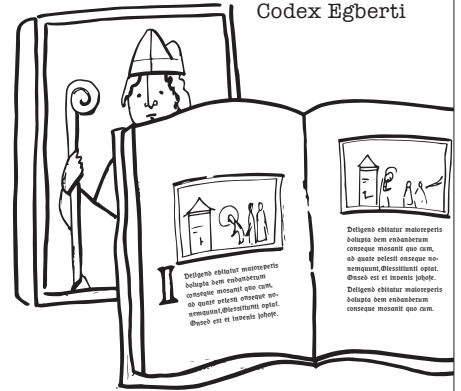 Codex Egberti
Deligend ebitatur maioreperis
dolupta dem endanderum
conseque mosanit quo cum,
ad quate velesti onseque no-
nemquunt,Olessitiunti optat.
Onsed est et invenis johoje.
Deligend ebitatur maioreperis
dolupta dem endanderum
conseque mosanit quo cum,
ad quate velesti onseque no-
nemquunt,Olessitiunti optat.
Onsed est et invenis johoje.
Deligend ebitatur maioreperis
dolupta dem endanderum
conseque mosanit quo cum.